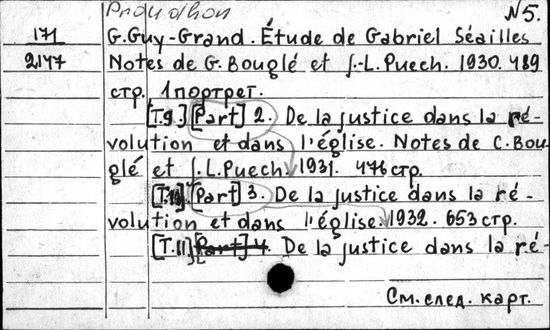 Proudhon N5.
171 G.Guy-Grand. Étude de Gabriel Séailles
2147 Notes de G. Bouglé et J.-L. Puech. 1930. 489
стр. 1 портрет.
[T.9.] [Part] 2. De la justice dans la ré-
volution et dans l'église. Notes de C. Bou-
glé et J.L.Puech 1931. 476 стр.
[T.10] [Part] 3. De la justice dans la ré-
volution et dans l'église. 1932. 653 стр.
[T.11] [Part] 4. De la justice dans la ré-
См. след. карт.